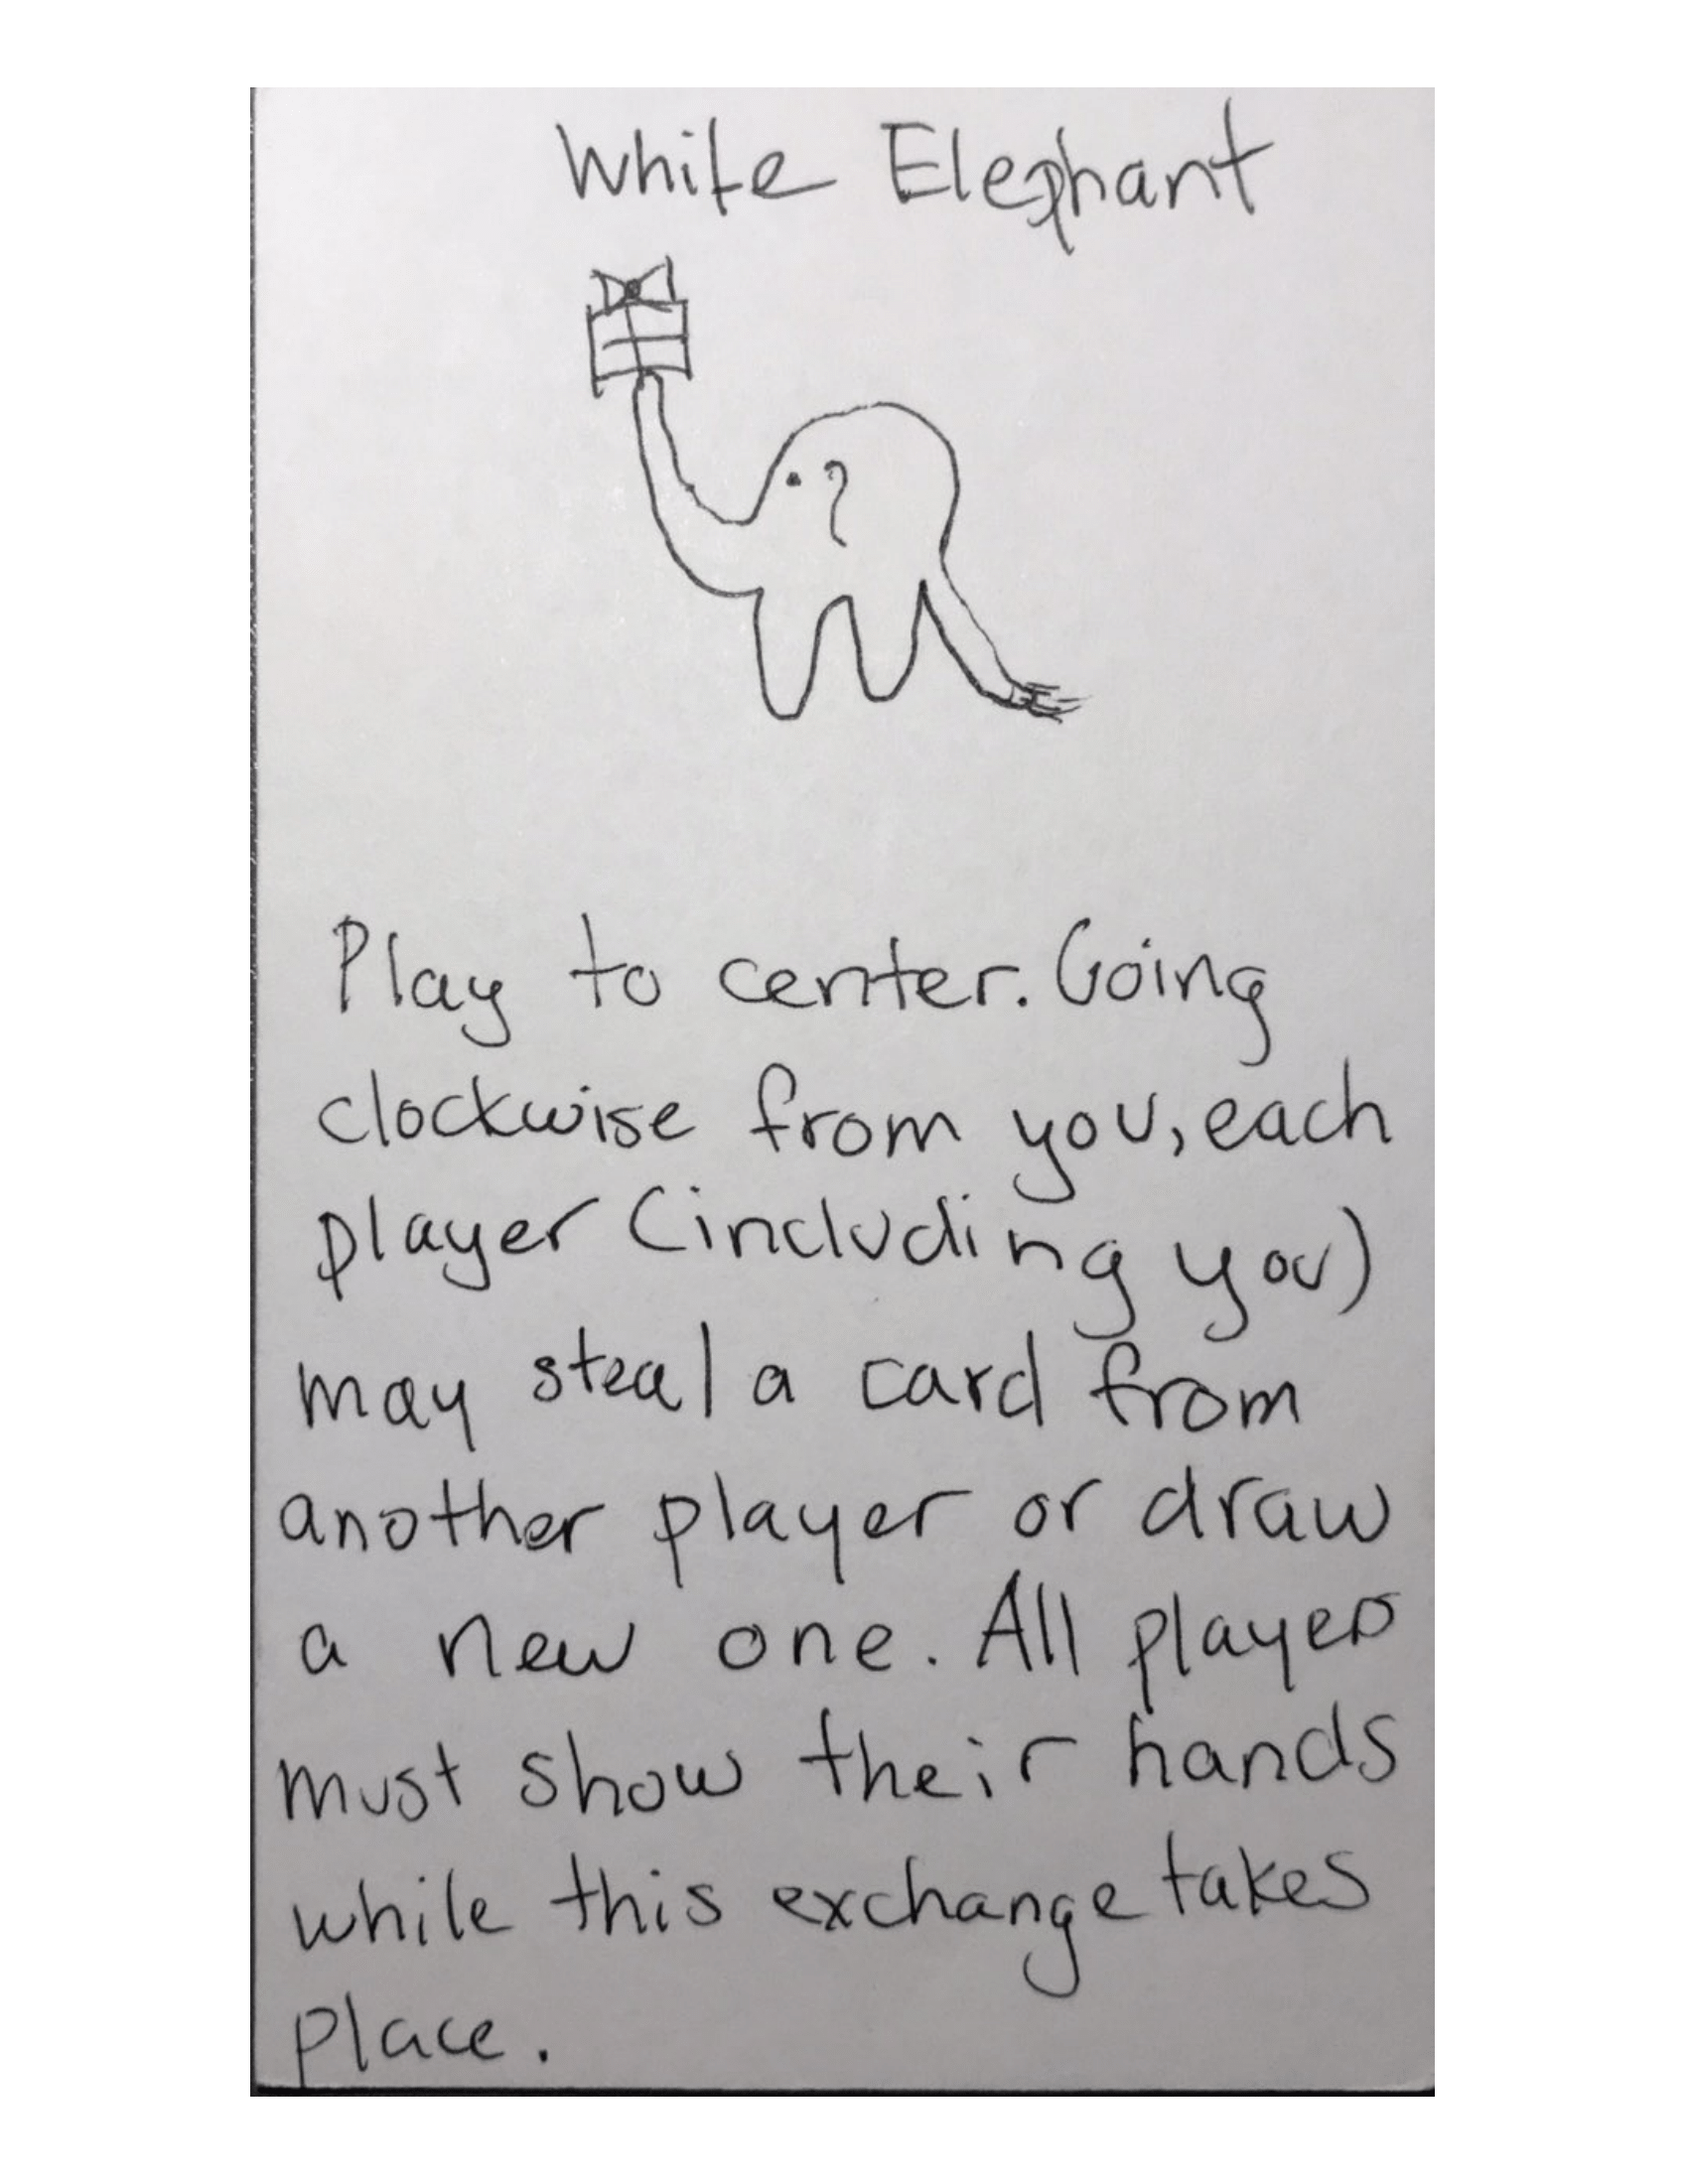 White Elephant
Play to center. Going
clockwise from you, each
player (including you)
may steal a card from
another player or draw
a new one. All players
must show their hands
while this exchange takes
place.